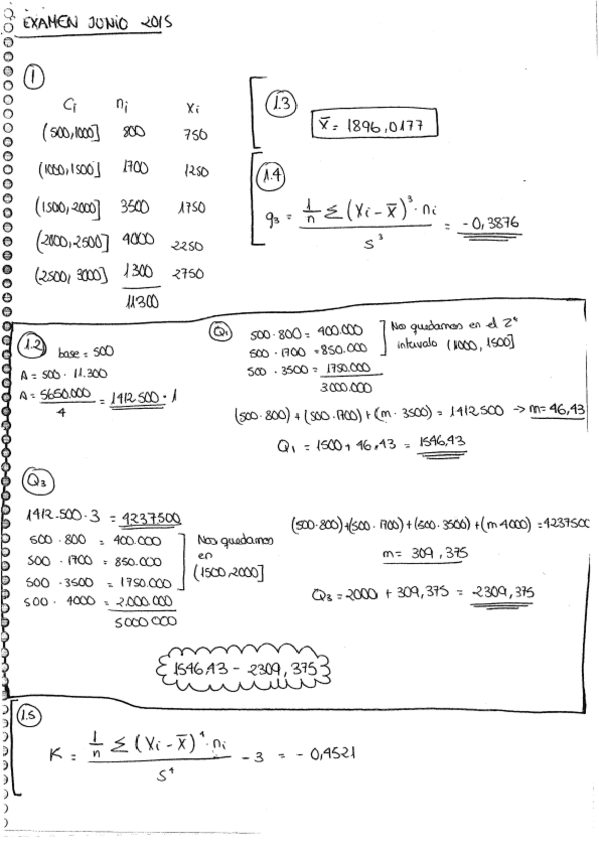 EXAMEN JUNIO 2015
1
Ci ni xi
(500,1000] 800 750
(1000,1500] 1700 1250
(1500,2000] 3500 1750
(2000,2500] 4000 2250
(2500,3000] 1300 2750
11300
1.3
x̄ = 1896,0177
1.4
g₃ = 1/n Σ (Xi - x̄)³ · ni / S³ = -0,3876
1.2
base = 500
A = 500 · 11.300
A = 5650.000 / 4 = 1412.500 · 1
Q₁
500 · 800 = 400.000
500 · 1700 = 850.000
500 · 3500 = 1750.000
3000.000
Nos quedamos en el 2º
intervalo (1000, 1500]
(500·800) + (500·1700) + (m · 3500) = 1412500 → m = 46,43
Q₁ = 1500 + 46,43 = 1546,43
Q₃
1412.500 · 3 = 4237500
500 · 800 = 400.000
500 · 1700 = 850.000
500 · 3500 = 1750.000
500 · 4000 = 2.000.000
5000000
Nos quedamos
en
(1500,2000]
(500·800)+(500·1700)+(500·3500)+(m·4000)=4237500
m = 309,375
Q₃ = 2000 + 309,375 = 2309,375
1546,43 - 2309,375
1.5
K = 1/n Σ (Xi - x̄)⁴ · ni / S⁴ - 3 = - 0,4521